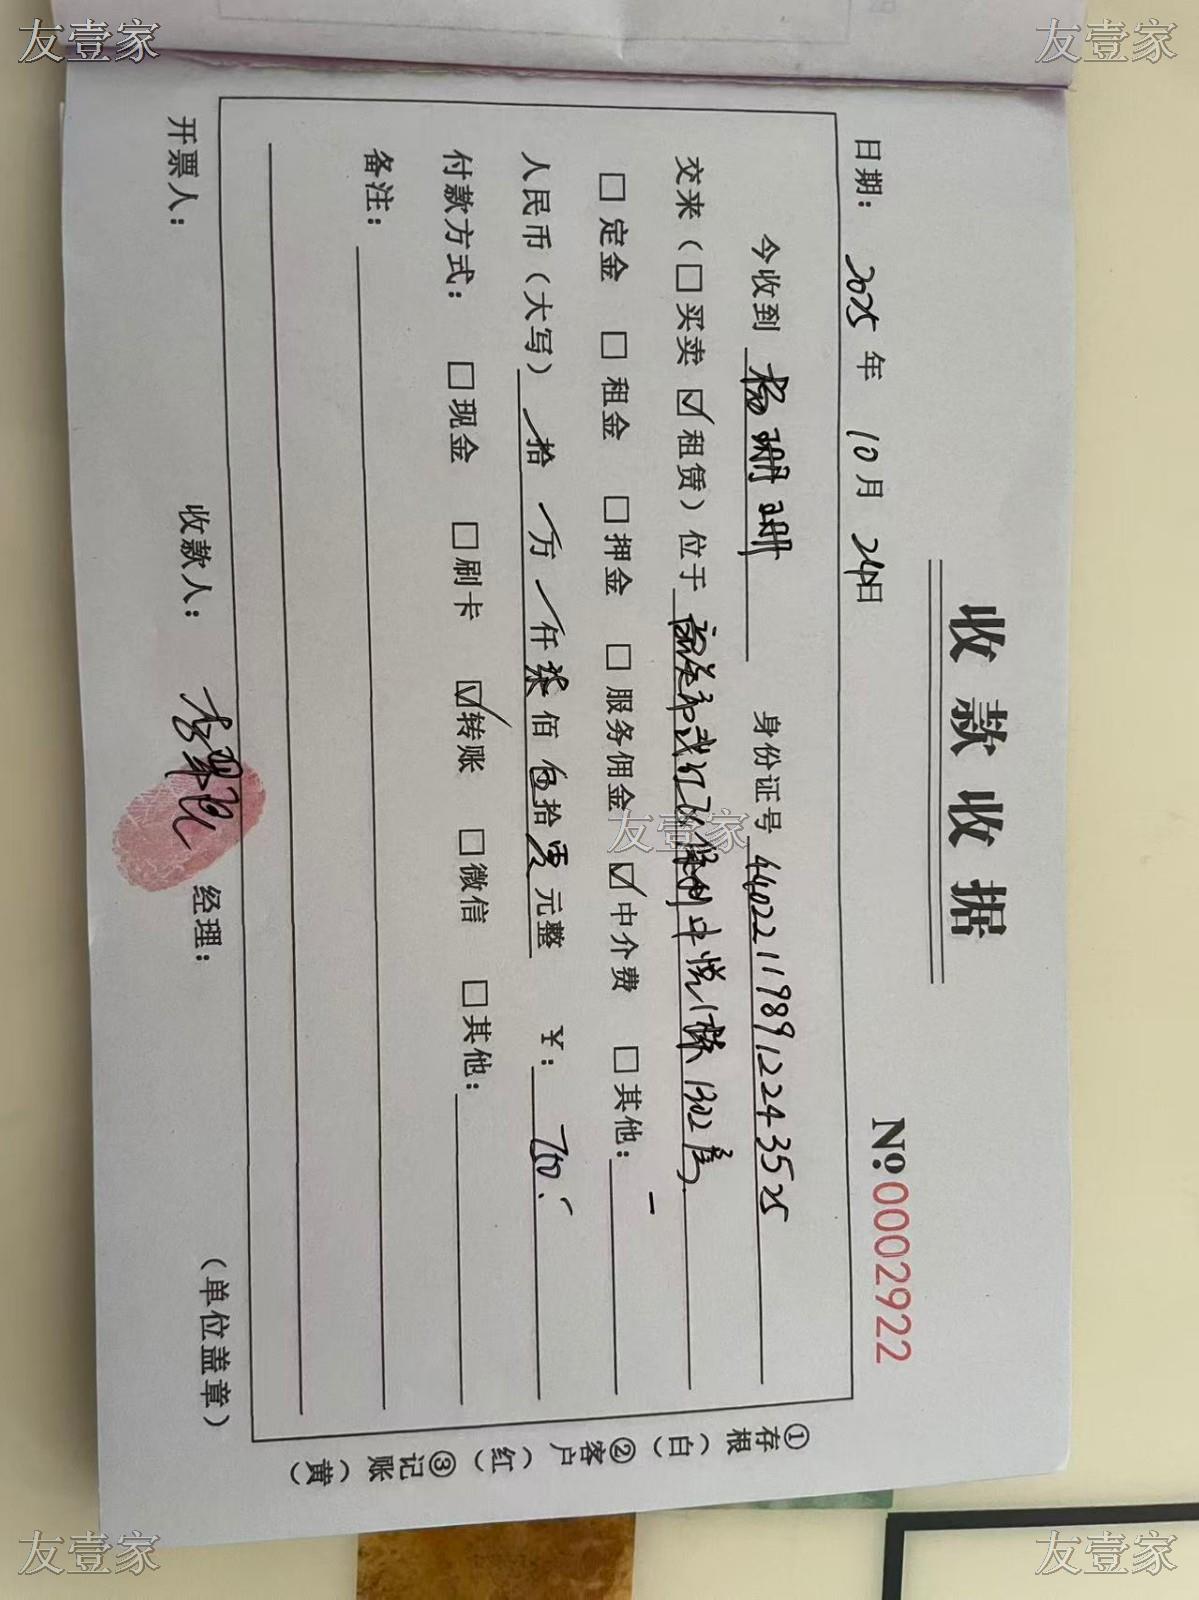 友壹家
友壹家
收款收据
No:0002922
日期: 2025 年 10 月 24日
今收到 杨珊珊 身份证号 440221198912243525
交来(□买卖 ☑租赁)位于 保利中悦1栋1302房
□定金 □租金 □押金 □服务佣金 ☑中介费 □其他:
人民币(大写) 拾 万 仟 柒 佰 伍 拾 零 元整 ¥: 750.
付款方式: □现金 □刷卡 ☑转账 □微信 □其他:
备注:
开票人: 收款人: 经理: (单位盖章)
①存根(白) ②客户(红) ③记账(黄)
友壹家
友壹家
友壹家